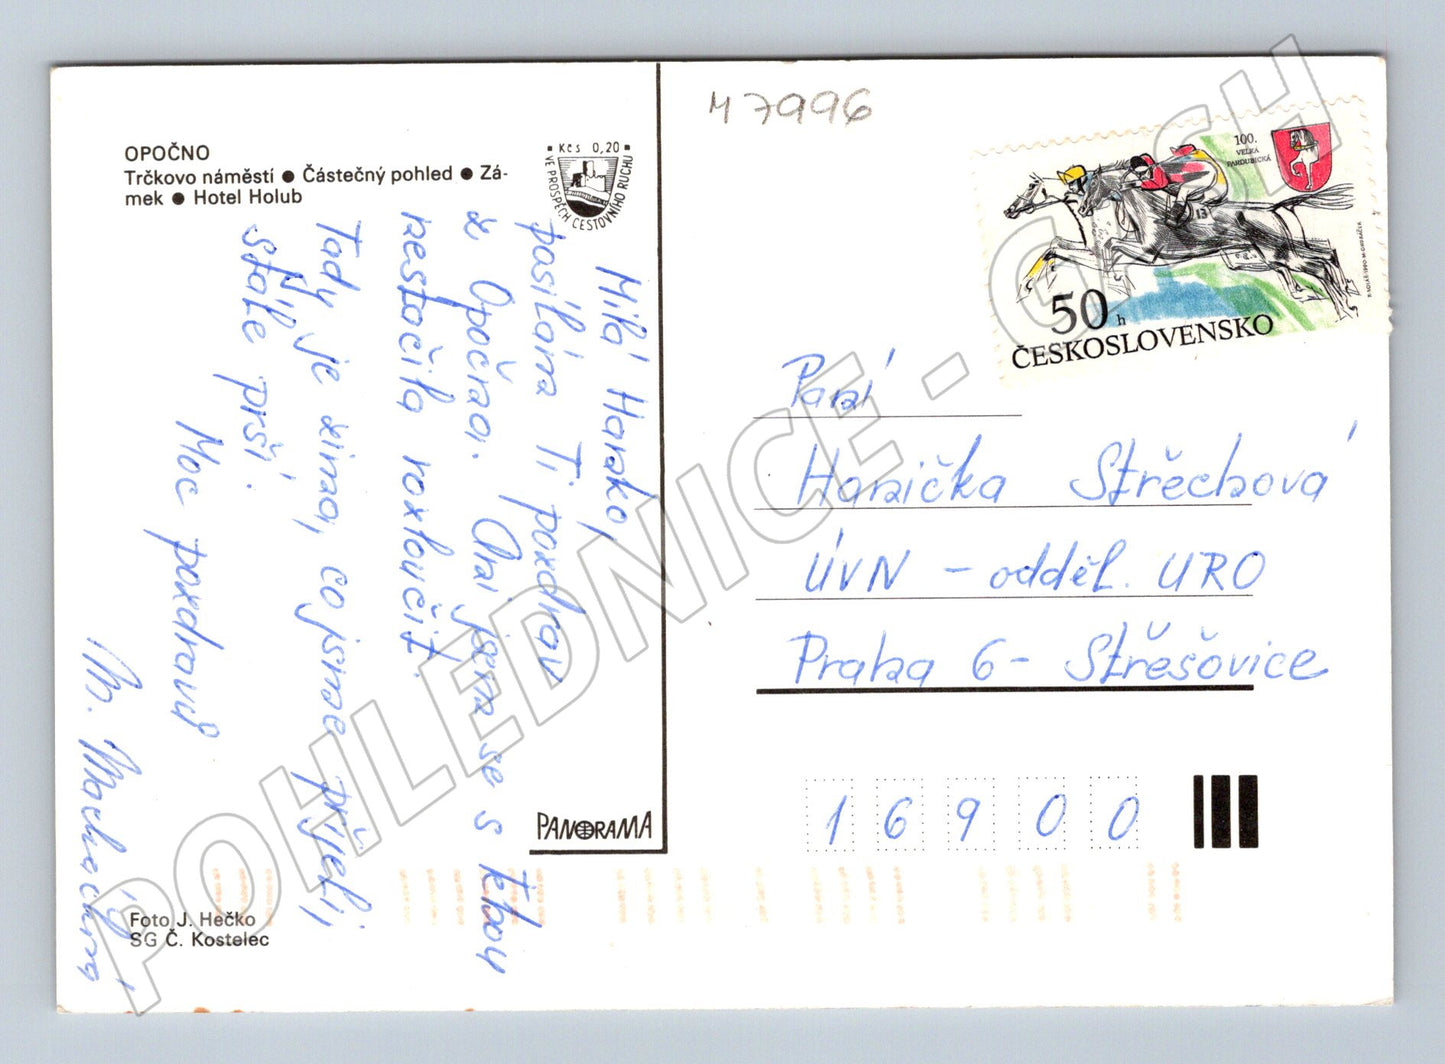 OPOČNO
Trčkovo náměstí ● Částečný pohled ● Zá-
mek ● Hotel Holub
Kčs 0,20
VE PROSPĚCH CESTOVNÍHO RUCHU
Milá Hanko,
posílám Ti pozdrav
z Opočna. Ani jsem se s tebou
nestačila rozloučit.
Tady je zima, co jsme přijeli,
stále prší.
Moc pozdravů
M. Machačová
PANORAMA
Foto J. Hečko
SG Č. Kostelec
M 7996
100.
VELKÁ
PARDUBICKÁ
13
50 h
ČESKOSLOVENSKO
Paní
Hanička Střechová
ÚVN - odděl. URO
Praha 6 - Střešovice
1 6 9 0 0
POHLEDNICE - CASH